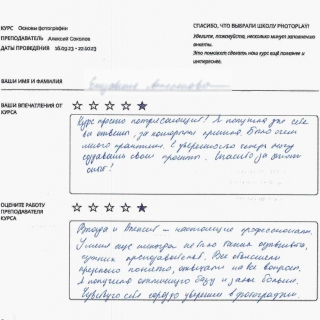 КУРС Основы фотографии
ПРЕПОДАВАТЕЛЬ Алексей Соколов
ДАТЫ ПРОВЕДЕНИЯ 16.09.23 - 22.10.23
СПАСИБО, ЧТО ВЫБРАЛИ ШКОЛУ PHOTOPLAY!
Уделите, пожалуйста, несколько минут заполнению
анкеты.
Это поможет сделать наш курс ещё полезнее и
интереснее.
ВАШИ ИМЯ И ФАМИЛИЯ
ВАШИ ВПЕЧАТЛЕНИЯ ОТ
КУРСА
Курс просто потрясающий! Я получила для себя
все ответы, за которыми пришла. Было очень
много практики. С уверенностью теперь могу
создавать свои проекты. Спасибо за этот
опыт!
ОЦЕНИТЕ РАБОТУ
ПРЕПОДАВАТЕЛЯ
КУРСА
и Алексей — настоящие профессионалы.
У меня ещё никогда не было таких отзывчивых,
чутких преподавателей. Все объясняли
предельно понятно, отвечали на все вопросы.
Я получила отличную базу и даже больше.
Чувствую себя гораздо увереннее в фотографии.